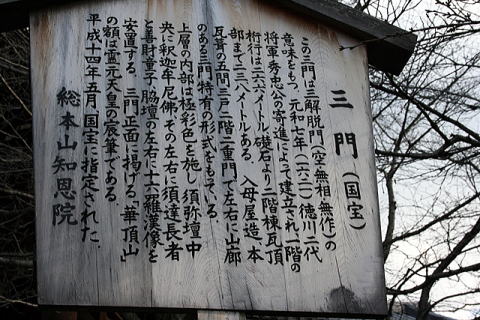 三門（国宝）
この三門は三解脱門（空・無相・無作）の
意味をもつ。元和七年（一六二一）徳川二代
将軍秀忠公の寄進によって建立され、一階の
桁行は二六六メートル、礎石より二階棟瓦頂
部まで二三八メートルある。入母屋造、本
瓦葺の五間三戸二階二重門で、左右に山廊
のある三門特有の形式をもている。
上層の内部は極彩色を施し、須弥壇中
央に釈迦牟尼佛、その左右に須達長者
と善財童子、脇壇の左右に十六羅漢像を
安置する。三門正面に掲げる「華頂山」
の額は霊元天皇の宸筆である。
平成十四年五月、国宝に指定された。
総本山知恩院